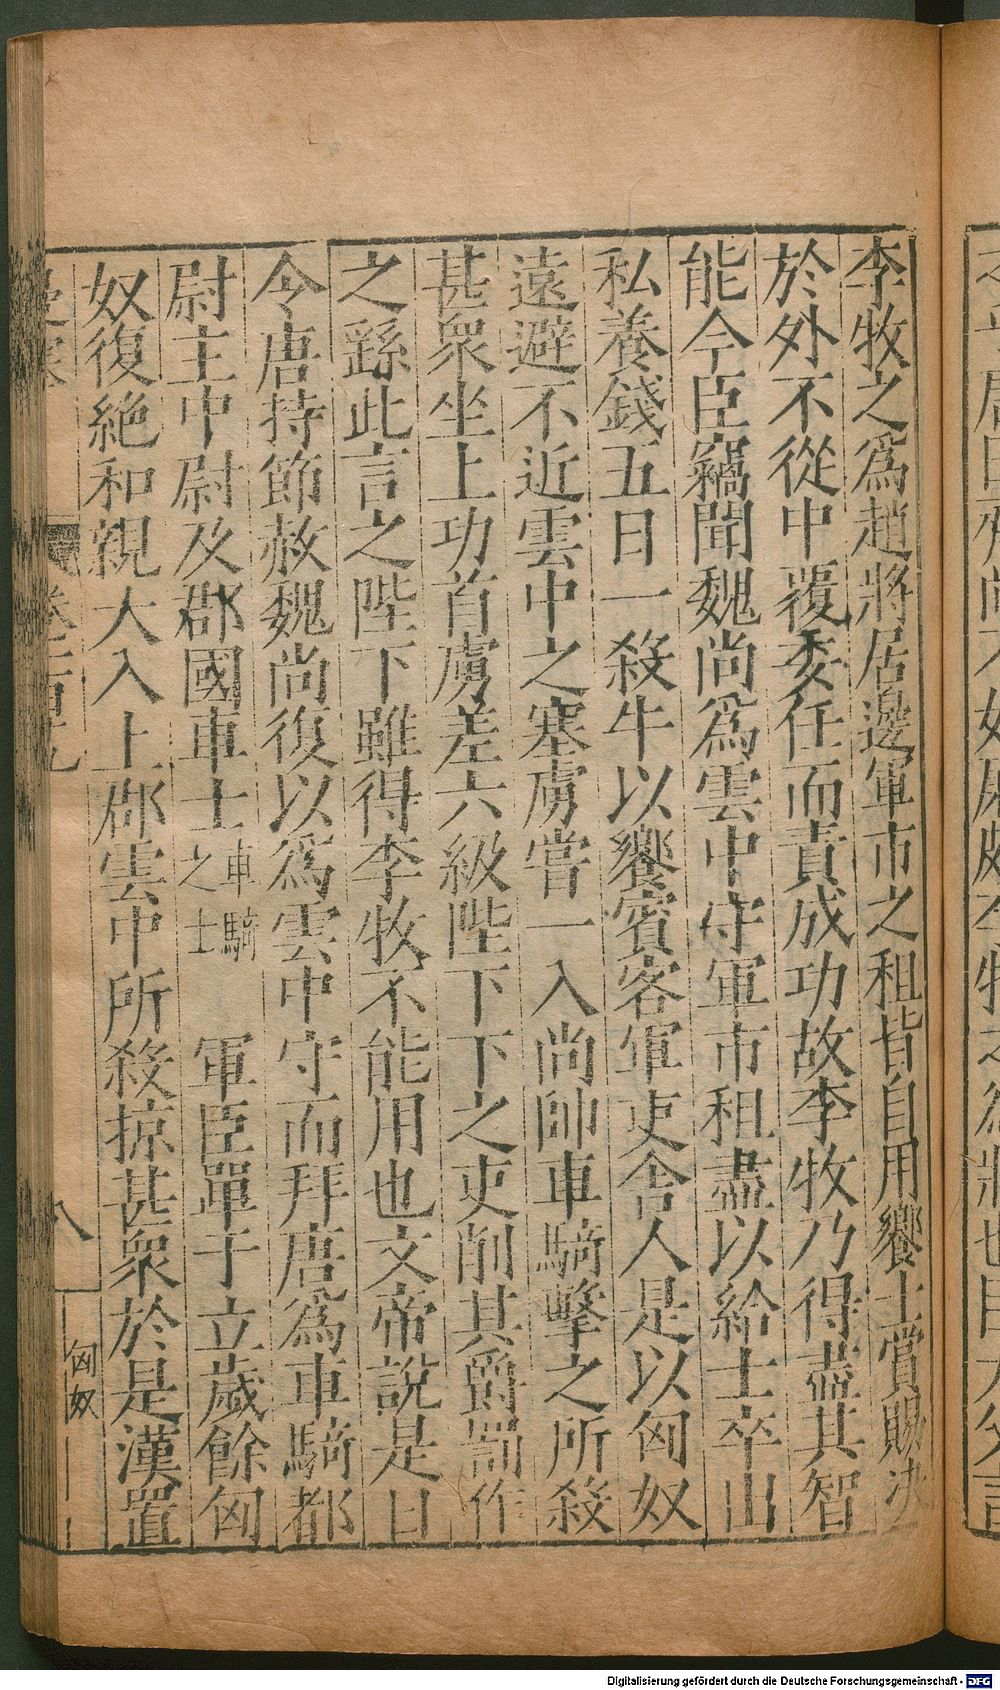 李牧之為趙將居邊軍市之租皆自用饗士賞賜決
於外不從中覆委任而責成功故李牧乃得盡其智
能今臣竊聞魏尚為雲中守軍市租盡以給士卒出
私養錢五日一殺牛以饗賓客軍吏舍人是以匈奴
遠避不近雲中之塞虜嘗一入尚帥車騎擊之所殺
甚衆坐上功首虜差六級陛下下之吏削其爵罰作
之繇此言之陛下雖得李牧不能用也文帝說是日
令唐持節赦魏尚復以為雲中守而拜唐為車騎都
尉主中尉及郡國車士車騎之士 軍臣單于立歲餘匈
奴復絶和親大入上郡雲中所殺掠甚衆於是漢置
八
匈奴
Digitalisierung gefördert durch die Deutsche Forschungsgemeinschaft - DFG